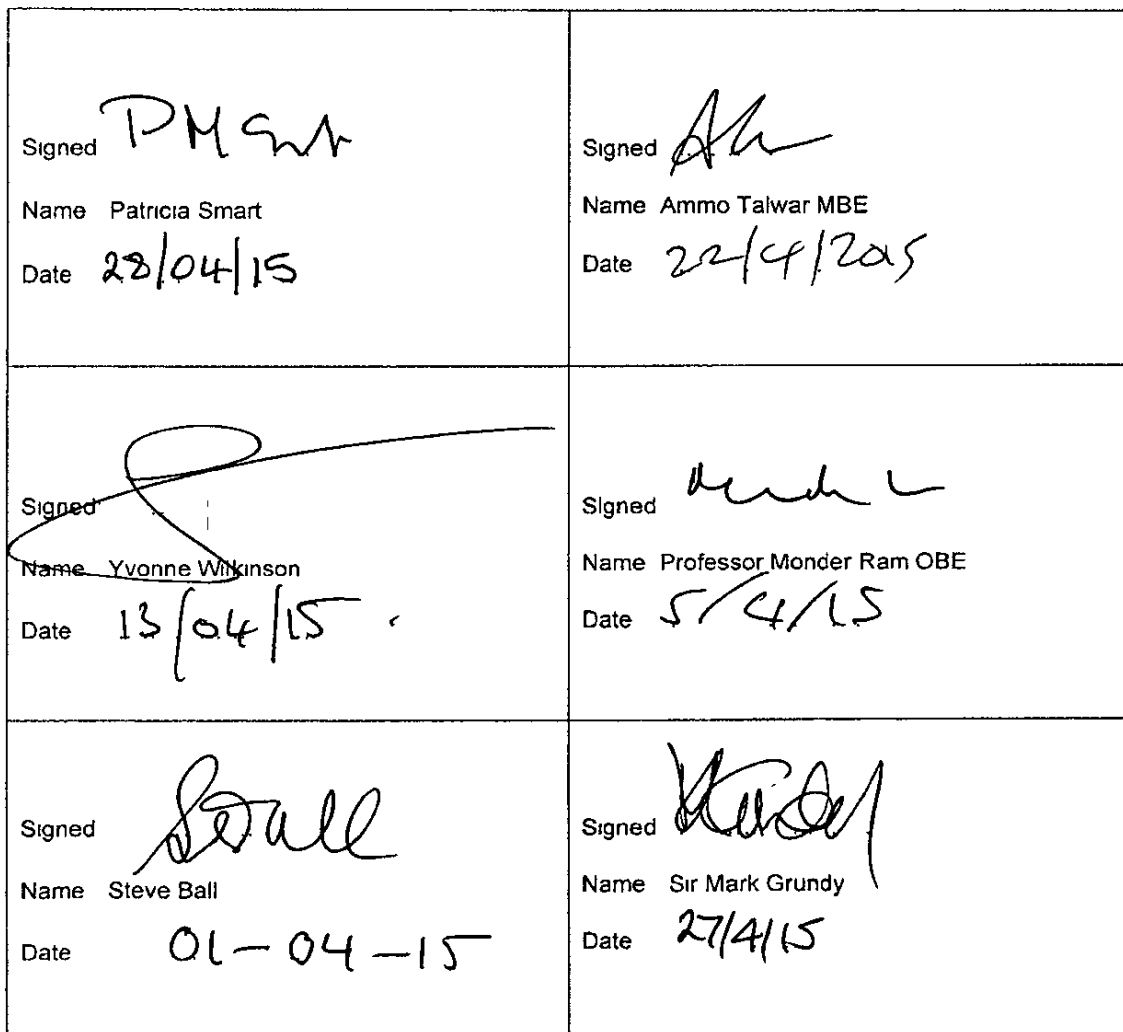 Signed PM Smart
Name Patricia Smart
Date 28/04/15
Signed
Name Ammo Talwar MBE
Date 22/4/2015
Signed
Name Yvonne Wilkinson
Date 13/04/15
Signed
Name Professor Monder Ram OBE
Date 5/4/15
Signed S Ball
Name Steve Ball
Date 01-04-15
Signed
Name Sir Mark Grundy
Date 27/4/15